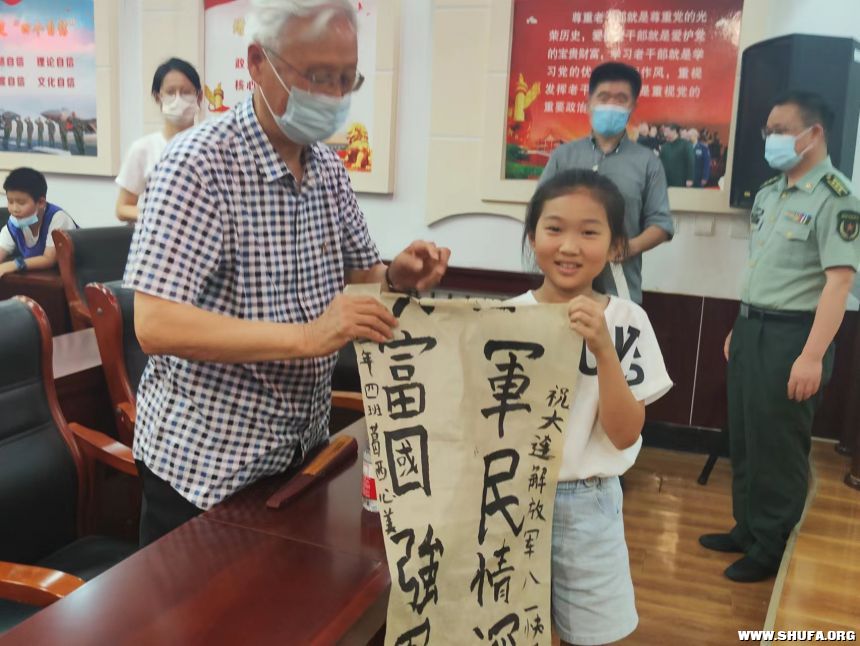 "四个自信"
自信 理论自信
自信 文化自信
政
核心
尊重老干部就是尊重党的光
荣历史，爱 干部就是爱护党
的宝贵财富，学习老干部就是学
习党的优 作风，重视
发挥老干 是重视党的
重要政治
祝大連解放军八一快
軍民情深
富國強
年四班葛西心美
WWW.SHUFA.ORG